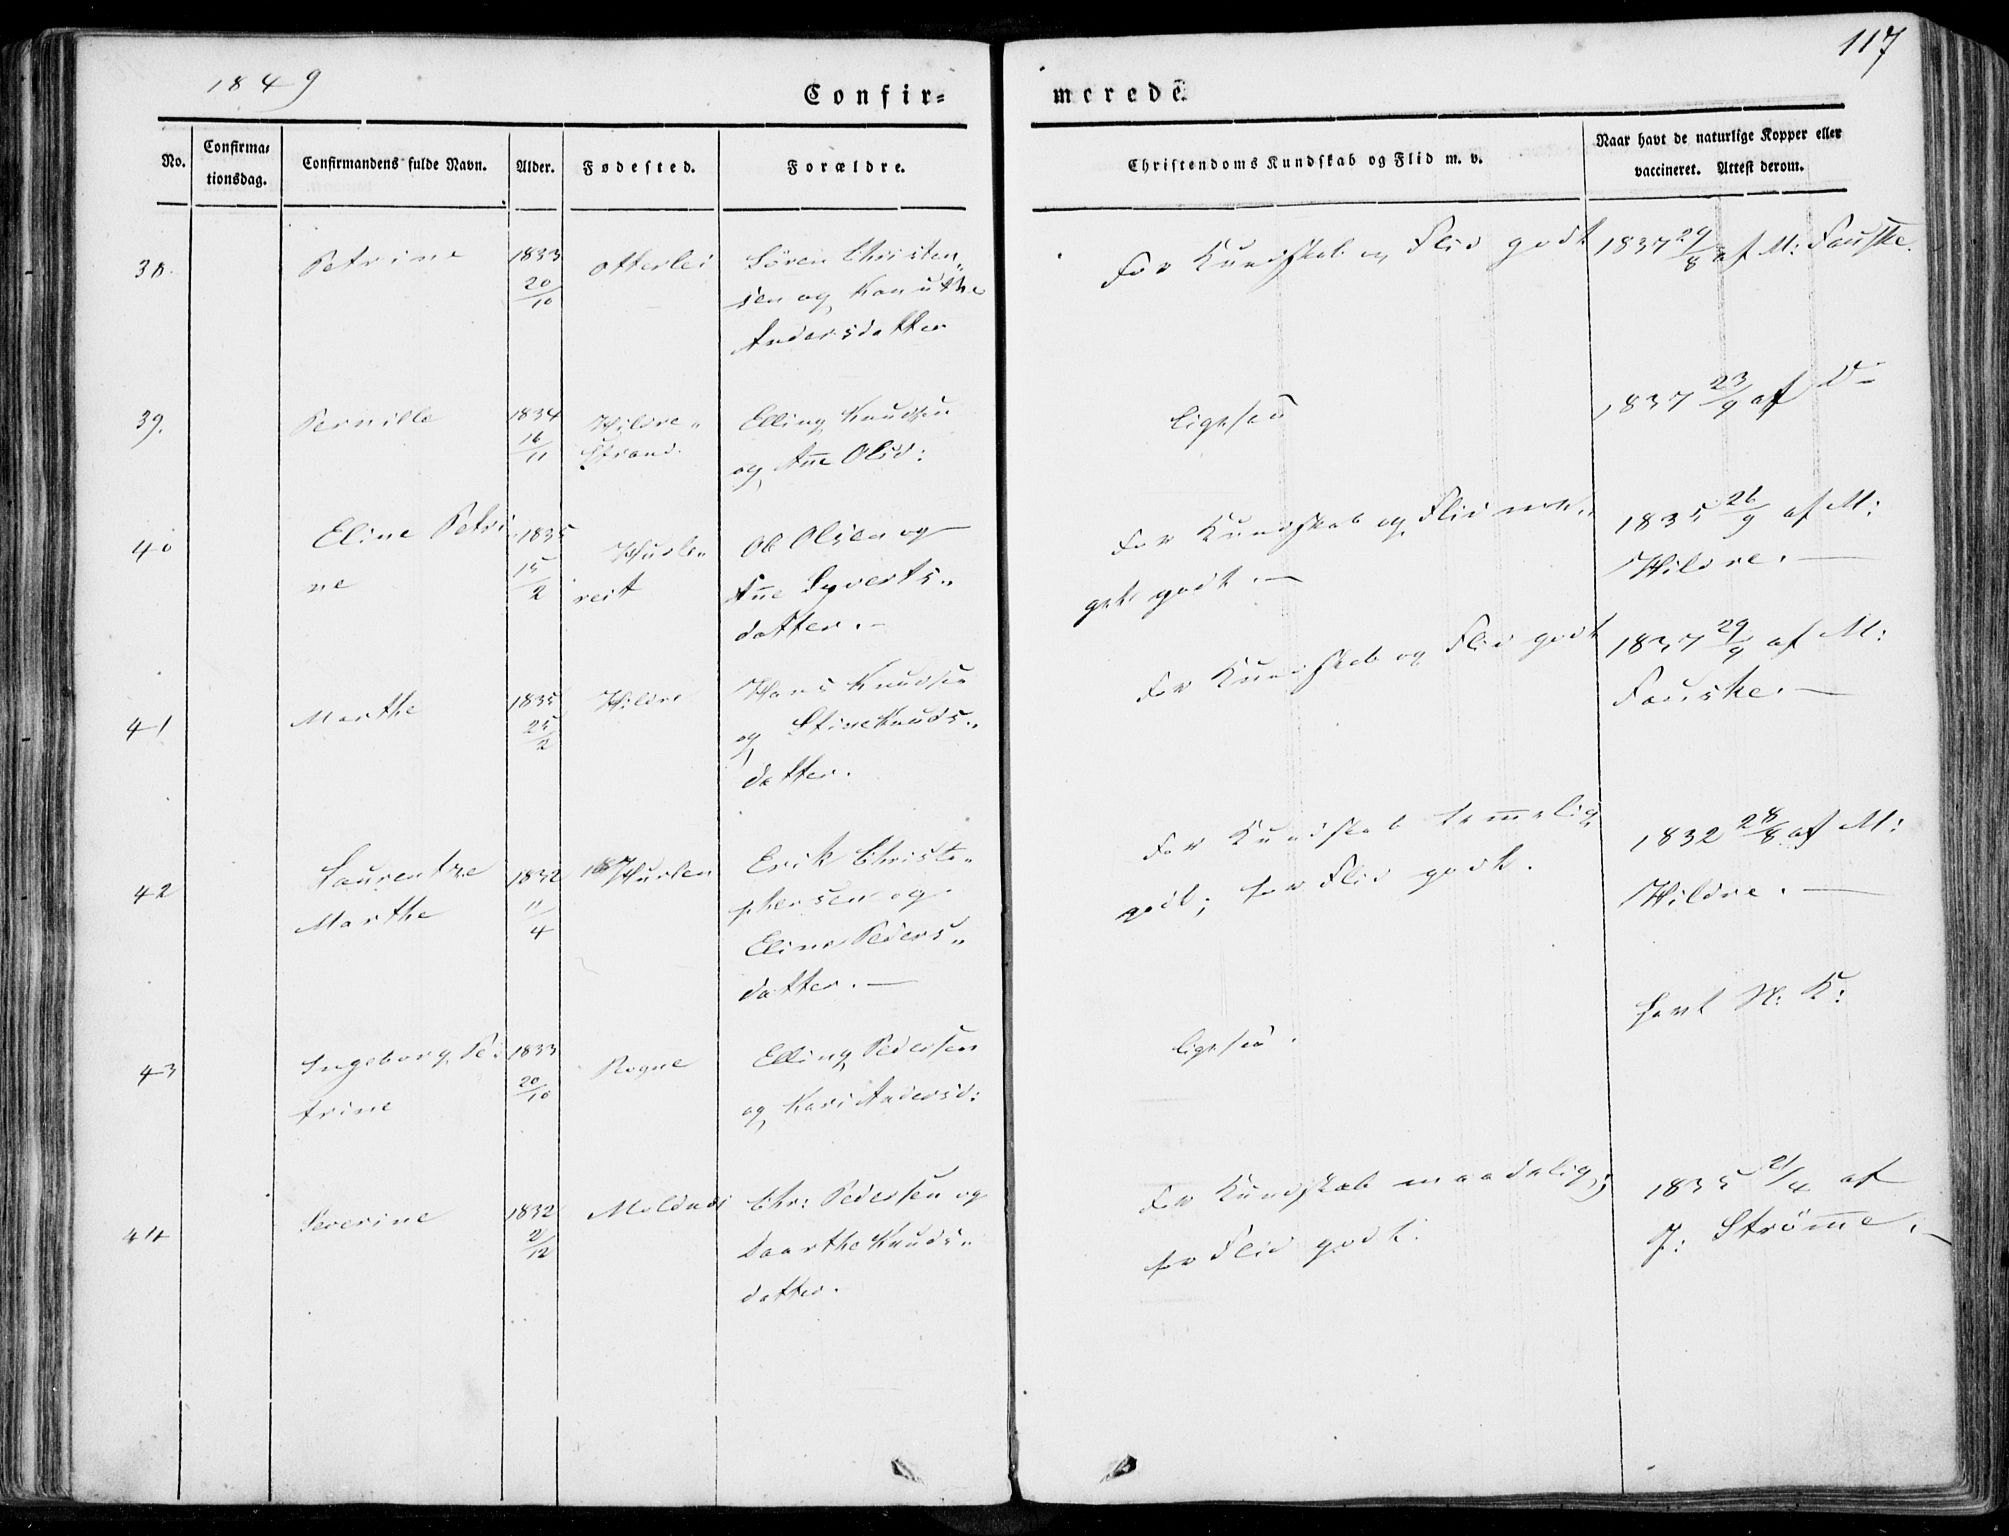 1849
Confir=
merede.
117
No.
Confirma=
tionsdag.
Confirmandens fulde Navn.
Alder.
Fødested.
Forældre.
Christendoms Kundskab og Flid m. v.
Naar havt de naturlige Kopper eller
vaccineret. Attest derom.
38.
Petrine
1833
20/10
Otterlei
Sören Christen„
sen og Kanuthe
Andersdatter
For Kundskab og Flid godt
1837 29/8 af M: Fauske.
39.
Pernille
1834
16/11
Hildre„
Strand.
Elling Knudsen
og Ane Olsd:
ligesaa
1837 23/9 af D-
40
Eline Petri
ne
1835
15/2
Hurle„
reit
Ob Olsen og
Ane Syverts„
datter.-
For Kundskab og Flid me„
get godt. —
1835 26/9 af M:
Hildre. —
41
Marthe
1835
25/2
Hildre
Hans Knudsen
og Stine Knuds„
datter.
For Kundskab og Flid godt
1837 29/9 af M:
Fauske. —
42
Laurentze
Marthe
1832
11/4
Hurlen
Erik Christo„
phersen og
Eline Peders„
datter. —
For Kundskab temmelig
godt; for Flid godt.
1832 28/8 af M:
Hildre. —
43
Ingeborg Pe:
trine
1833
20/10
Rogne
Elling Pedersen
og Kari Andersd:
ligesaa.
havt N: K:
44
Severine
1832
2/12
Chr: Pedersen og
Daarthe Knuds„
datter.
For Kundskab maadelig;
for Flid godt.
1835 21/4 af
J: Strömme. -